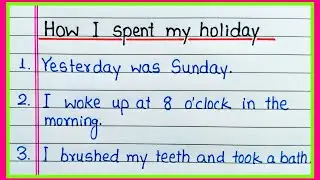 How I spent my holiday
1. Yesterday was Sunday.
2. I woke up at 8 o'clock in the
morning.
3. I brushed my teeth and took a bath.